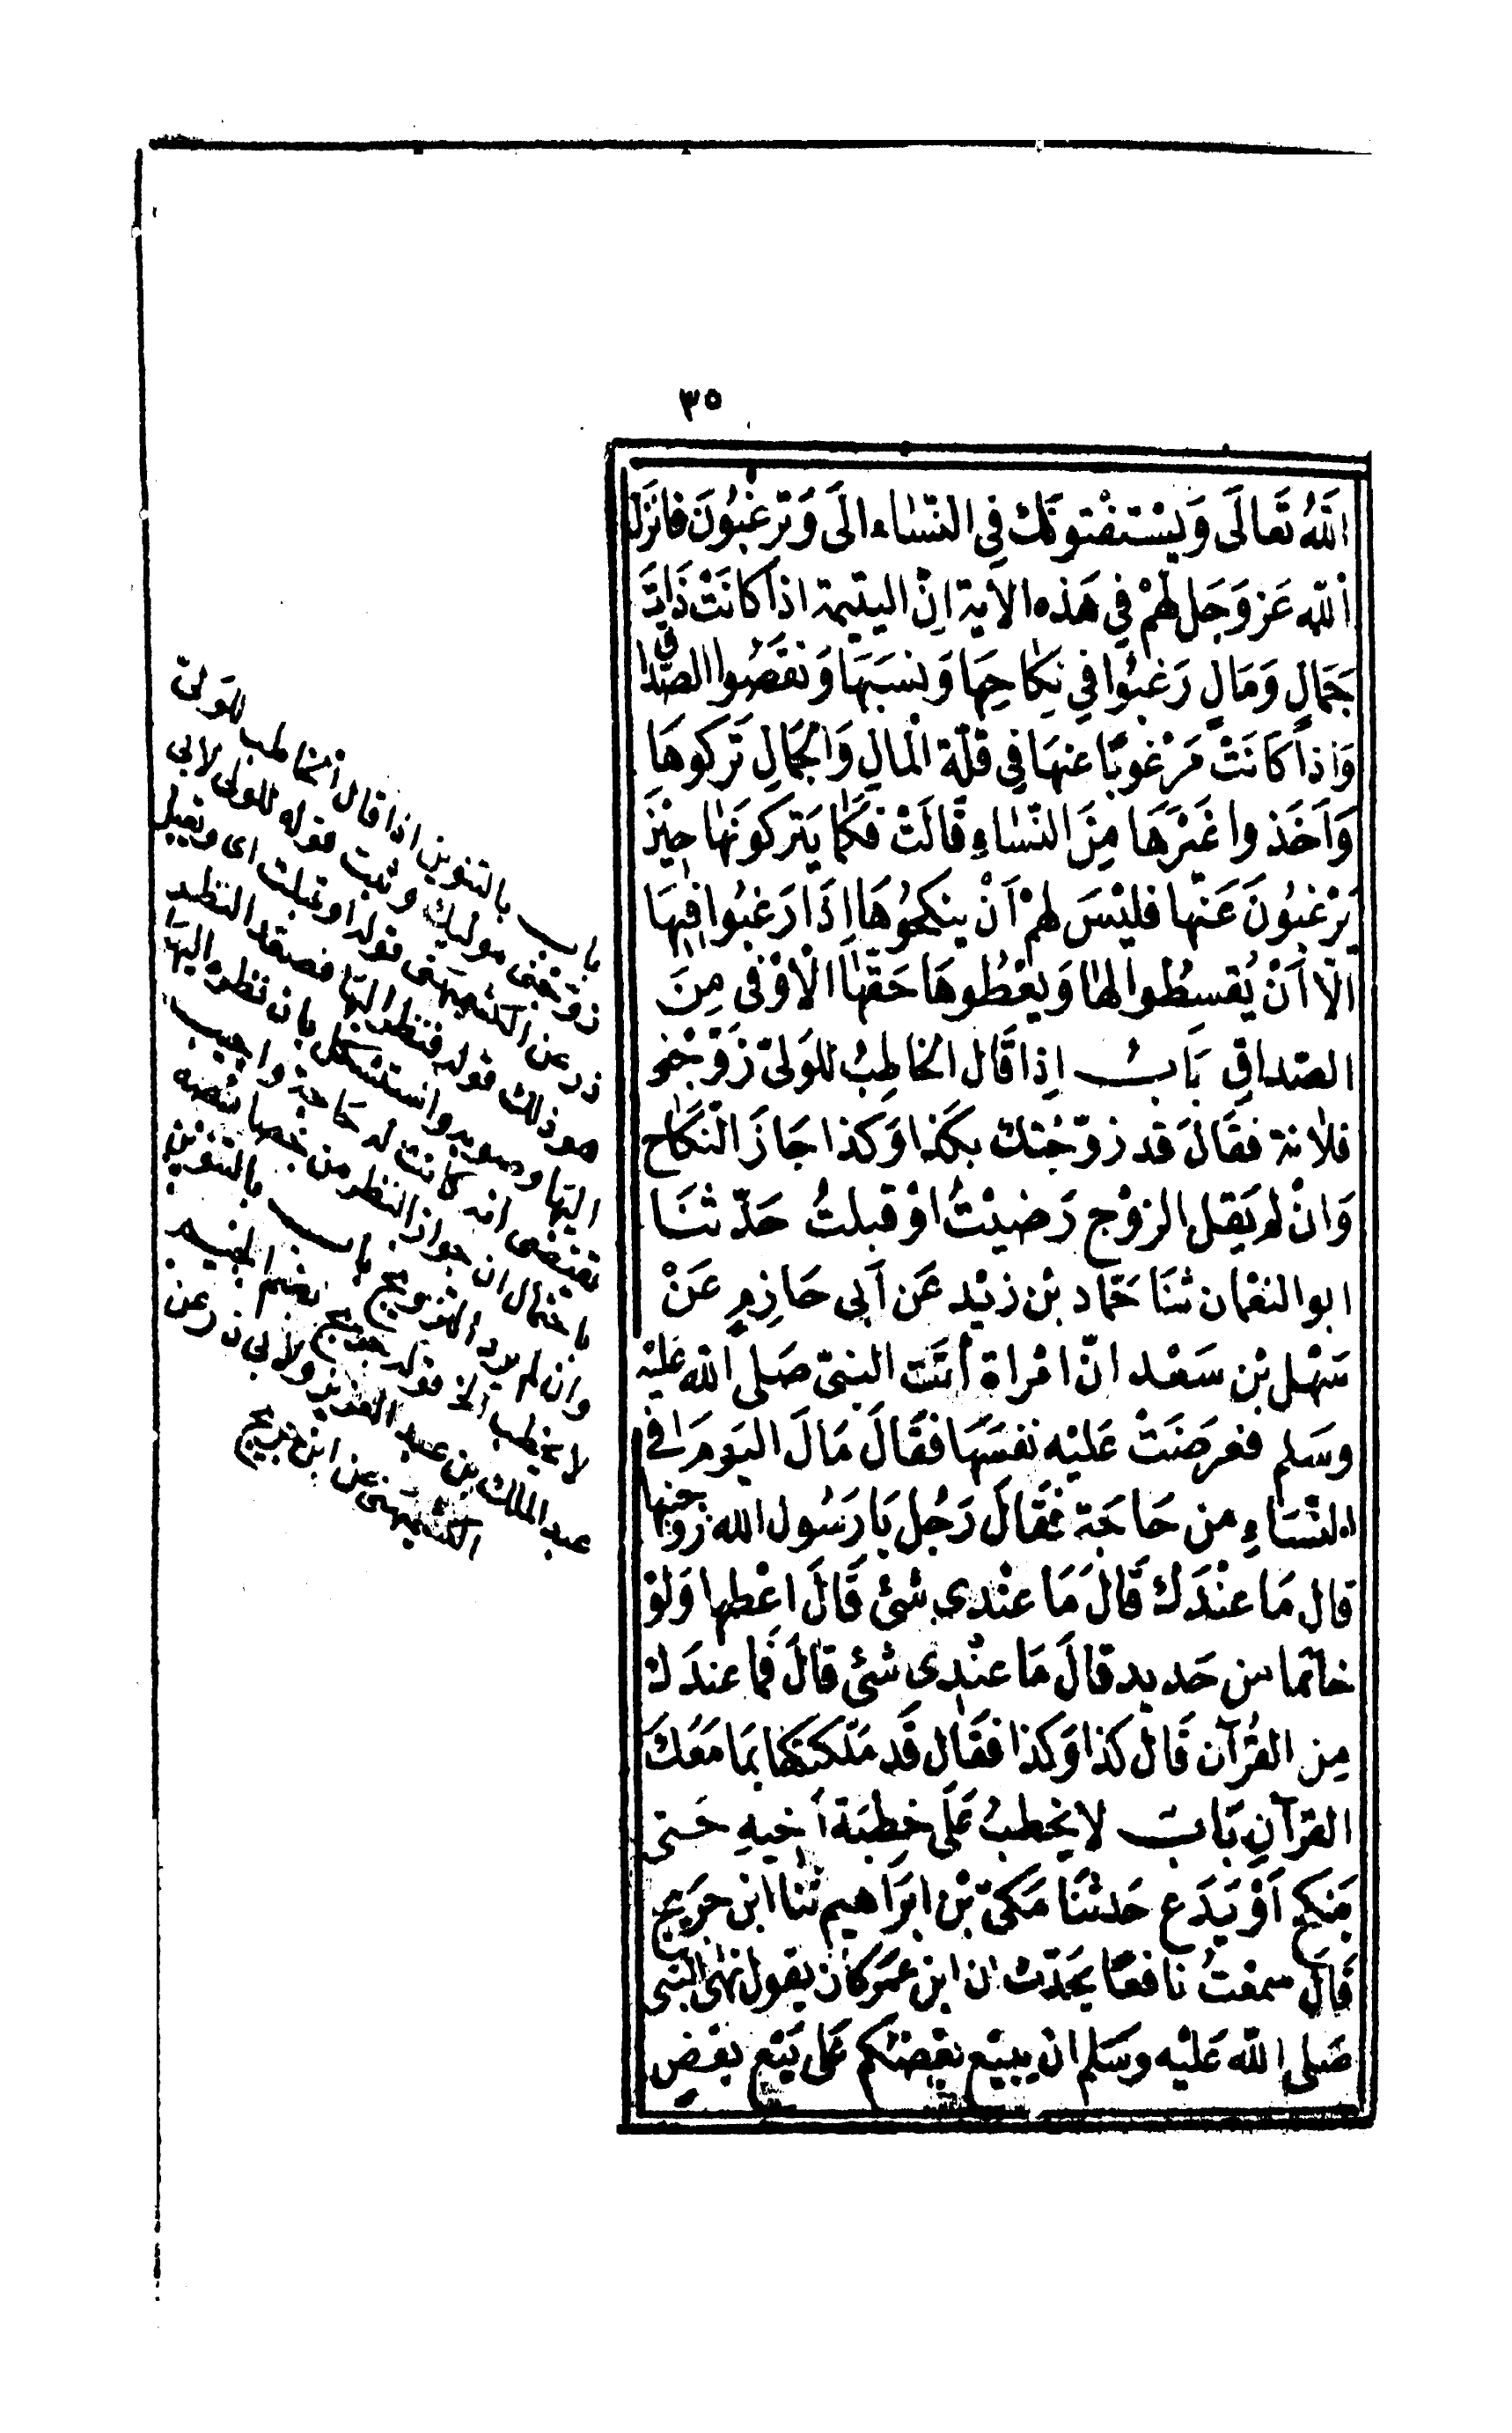 ٣٥
اللّٰهُ تَعَالَى وَيَسْتَفْتُونَكَ فِي النّسَاء الَى وَتَرغَبُونَ فانزَل
اللّه عَز وَجَل لهُمْ فِي هَذه الاية انّ اليتيمة اذا كانَتْ ذَاتَ
جَمَالٍ وَمَالٍ رَغبُوا فِي نِكاحِهَا وَنسَبَهَا وَنقصُوا في الصّدا
وَاذا كَانَتْ مَرْغوبًا عنهَا فِي قلّة الْمالِ وَالجمَالِ تَركوهَا
وَاَخَذوا غَيْرَهَا مِنَ النّسَاءِ قَالَتْ فكمَا يَتركونَهَا حِيْنَ
يَرْغبُونَ عَنها فليْسَ لهمْ اَنْ ينكحُوهَا اِذَا رَغبُوا فِيهَا
الّا اَنْ يُقسطُوا لها وَيعْطُوهَا حَقّهَا الْاَوْفى مِنَ
الصّداقِ بَابُ اِذا قَالَ الخاطِبُ للوَليّ زَوّجْنى
فلانة فقالَ قد زوّجْتك بكذا وَكذا جَازَ النّكاح
وَانْ لم يَقل الزوْج رَضيْتُ اوْ قبلتُ حَدّثنَا
ابو النعْمان ثنَا حَمّاد بْن زيْد عَن اَبى حَازِمٍ عَنْ
سَهْل بْن سَعْد انّ امْراة أتَت النبيّ صَلى اللّه عَليْه
وسَلم فعرضَتْ عَليْه نفسَهَا فقَالَ مَالَى اليَومَ في
النّسَاءِ من حَاجَة فقَالَ رَجُل يَا رَسُول الله زوّجنيها
قال مَا عنْدَك قَالَ مَا عنْدى شئ قَالَ اعْطها وَلوْ
خاتما من حَديد قالَ مَا عنْدِى شئ قالَ فما عندَك
مِن القُرآن قَال كذا وَكذا فقَال قَد مَلّكتكها بمَا مَعَكَ
القرآنِ بَابٌ لا يخطبُ عَلَى خِطبَة أَخيهِ حَتى
يَنكح اَوْ يَدَع حَدثنَا مَكيّ بْن ابرَاهيم ثنا ابن جرَيج
قَالَ سمعْتُ نافعًا يحَدّث ان ابن عمَر كان يقول نهَى النّبى
صَلى اللّه عَليْه وسَلم ان يبيْع بعضكم عَلى بَيْع بعْضٍ
باب بالتنوين اذا قال الخاطب للوَلىّ
زوّجنى موليتك وثبت قوله للولى لابى
ذر عن الكشميهنى قوله او قبلت اى
هو ذلك قوله فنظر اليها فصعد النظر
اليها وصوبه واستشكل بان نظره اليها
يقتضى انه كانت له حاجة واجيب
باحتمال ان جواز النظر من خصائصه
وان لم يرد التزويج باب بالتنوين
لا يخطب الخ قوله جريج بضم الجيم
عبد الملك بن عبد العزيز ولابى ذر عن
الكشميهنى عن ابن جريج